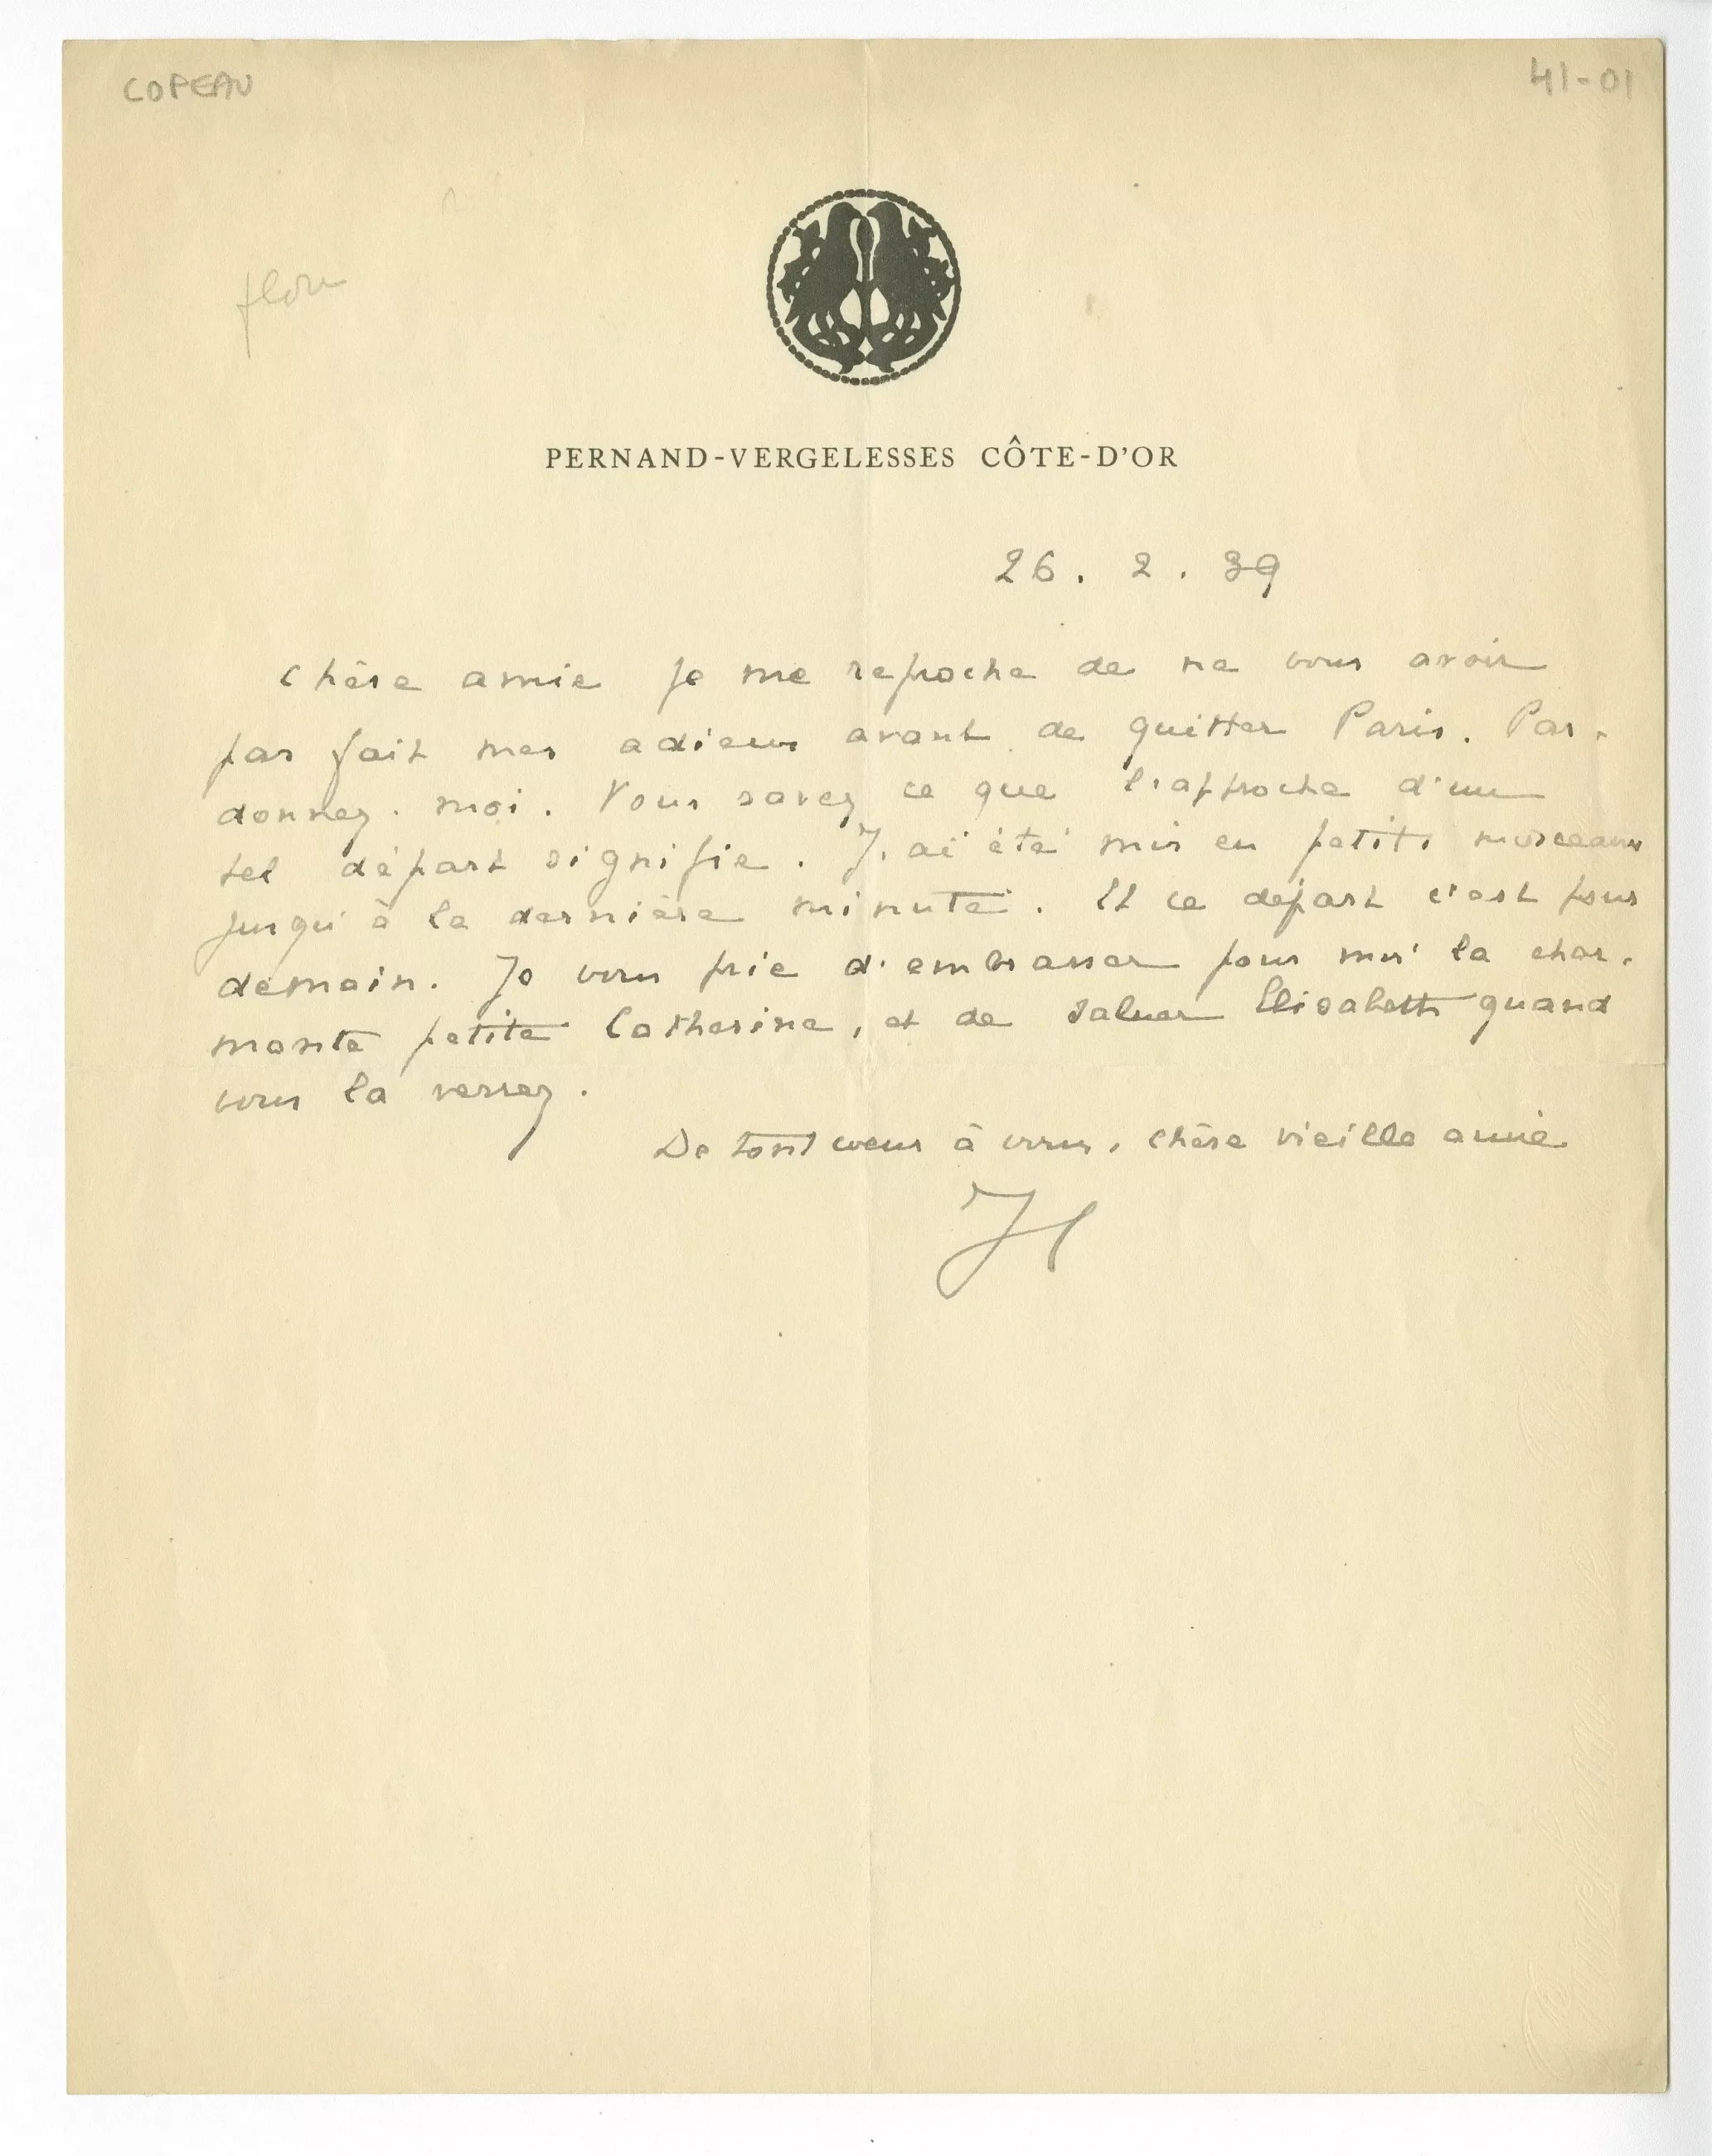 COPEAU
41-01
PERNAND-VERGELESSES CÔTE-D'OR
26. 2. 39
Chère amie je me reproche de ne vous avoir
pas fait mes adieux avant de quitter Paris. Par-
donnez-moi. Vous savez ce que l'approche d'un
tel départ signifie. J'ai été mis en petits morceaux
jusqu'à la dernière minute. Et ce départ c'est pour
demain. Je vous prie d'embrasser pour moi la char-
mante petite Catherine, et de saluer Elisabeth quand
vous la verrez.
De tout cœur à vous, chère vieille amie